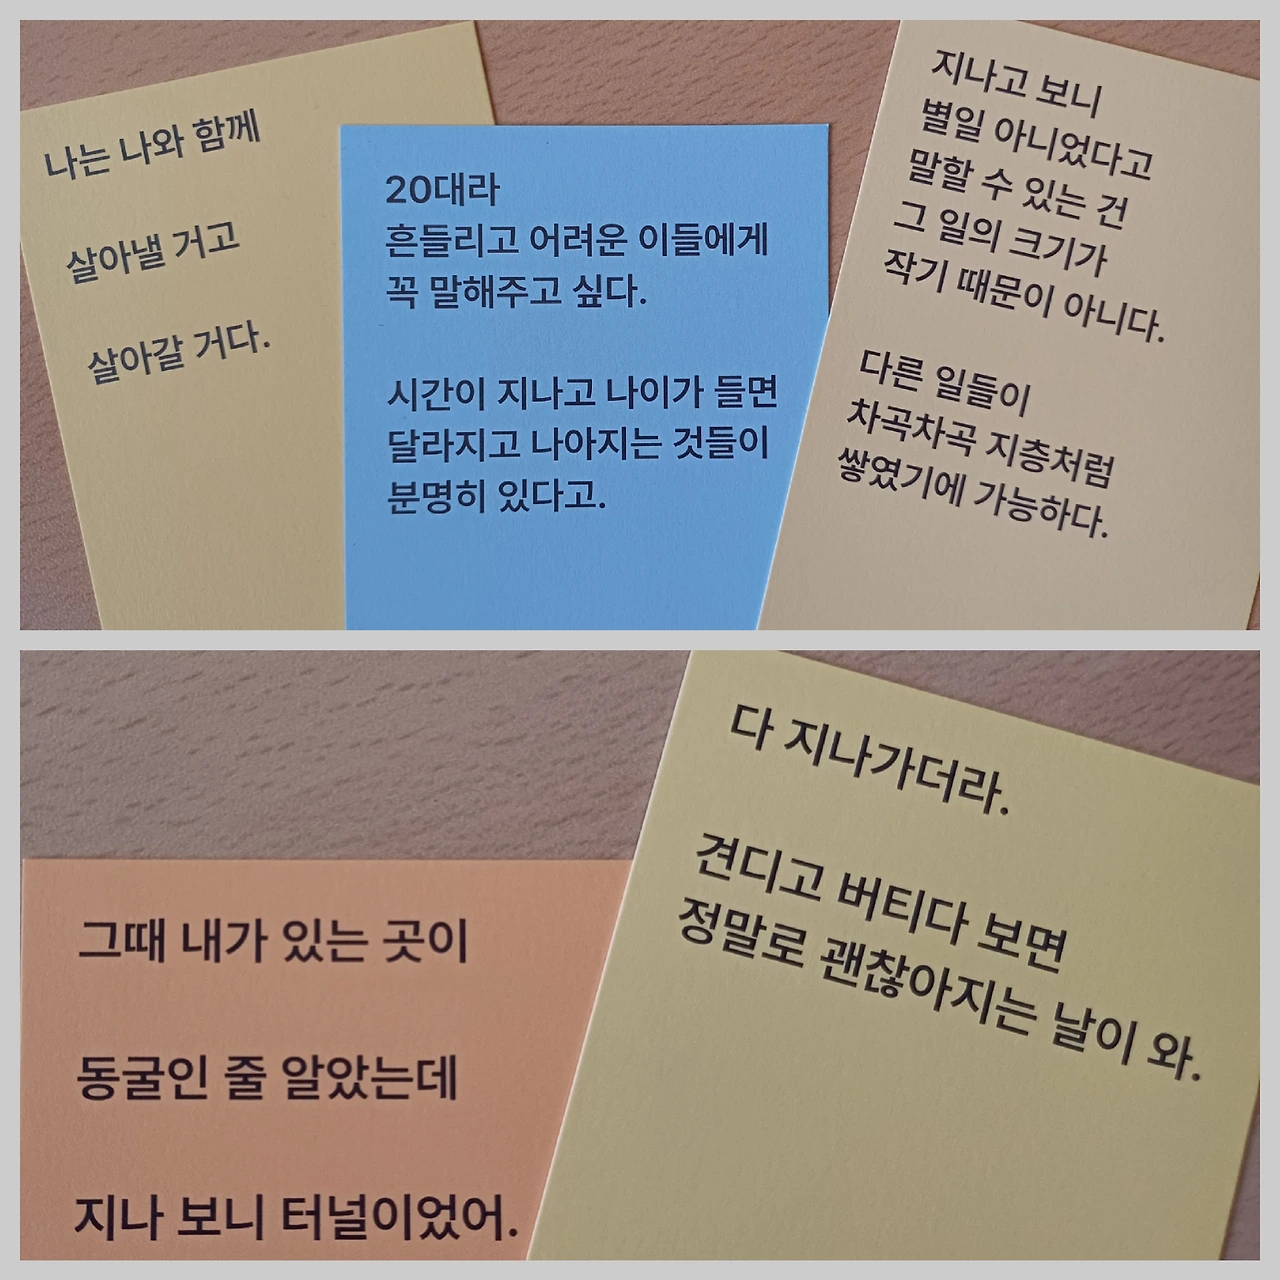 나는 나와 함께
살아낼 거고
살아갈 거다.
20대라
흔들리고 어려운 이들에게
꼭 말해주고 싶다.
시간이 지나고 나이가 들면
달라지고 나아지는 것들이
분명히 있다고.
지나고 보니
별일 아니었다고
말할 수 있는 건
그 일의 크기가
작기 때문이 아니다.
다른 일들이
차곡차곡 지층처럼
쌓였기에 가능하다.
그때 내가 있는 곳이
동굴인 줄 알았는데
지나 보니 터널이었어.
다 지나가더라.
견디고 버티다 보면
정말로 괜찮아지는 날이 와.